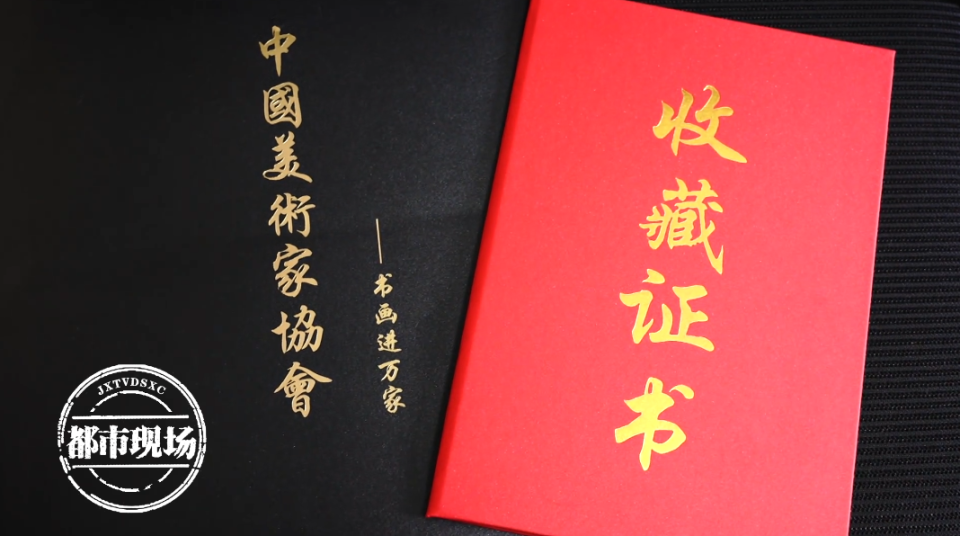 中國美術家協會
——书画进万家
收藏证书
JXTVDSXC
都市现场